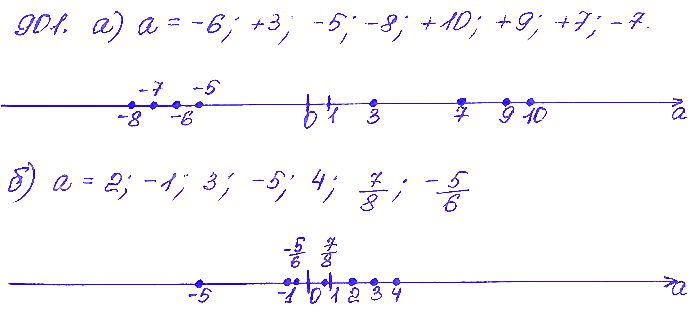 901. а) a = -6; +3; -5; -8; +10; +9; +7; -7.
-7 -5
-8 -6 0 1 3 7 9 10 a
б) a = 2; -1; 3; -5; 4; 7/8; -5/6
-5/6 7/8
-5 -1 0 1 2 3 4 a